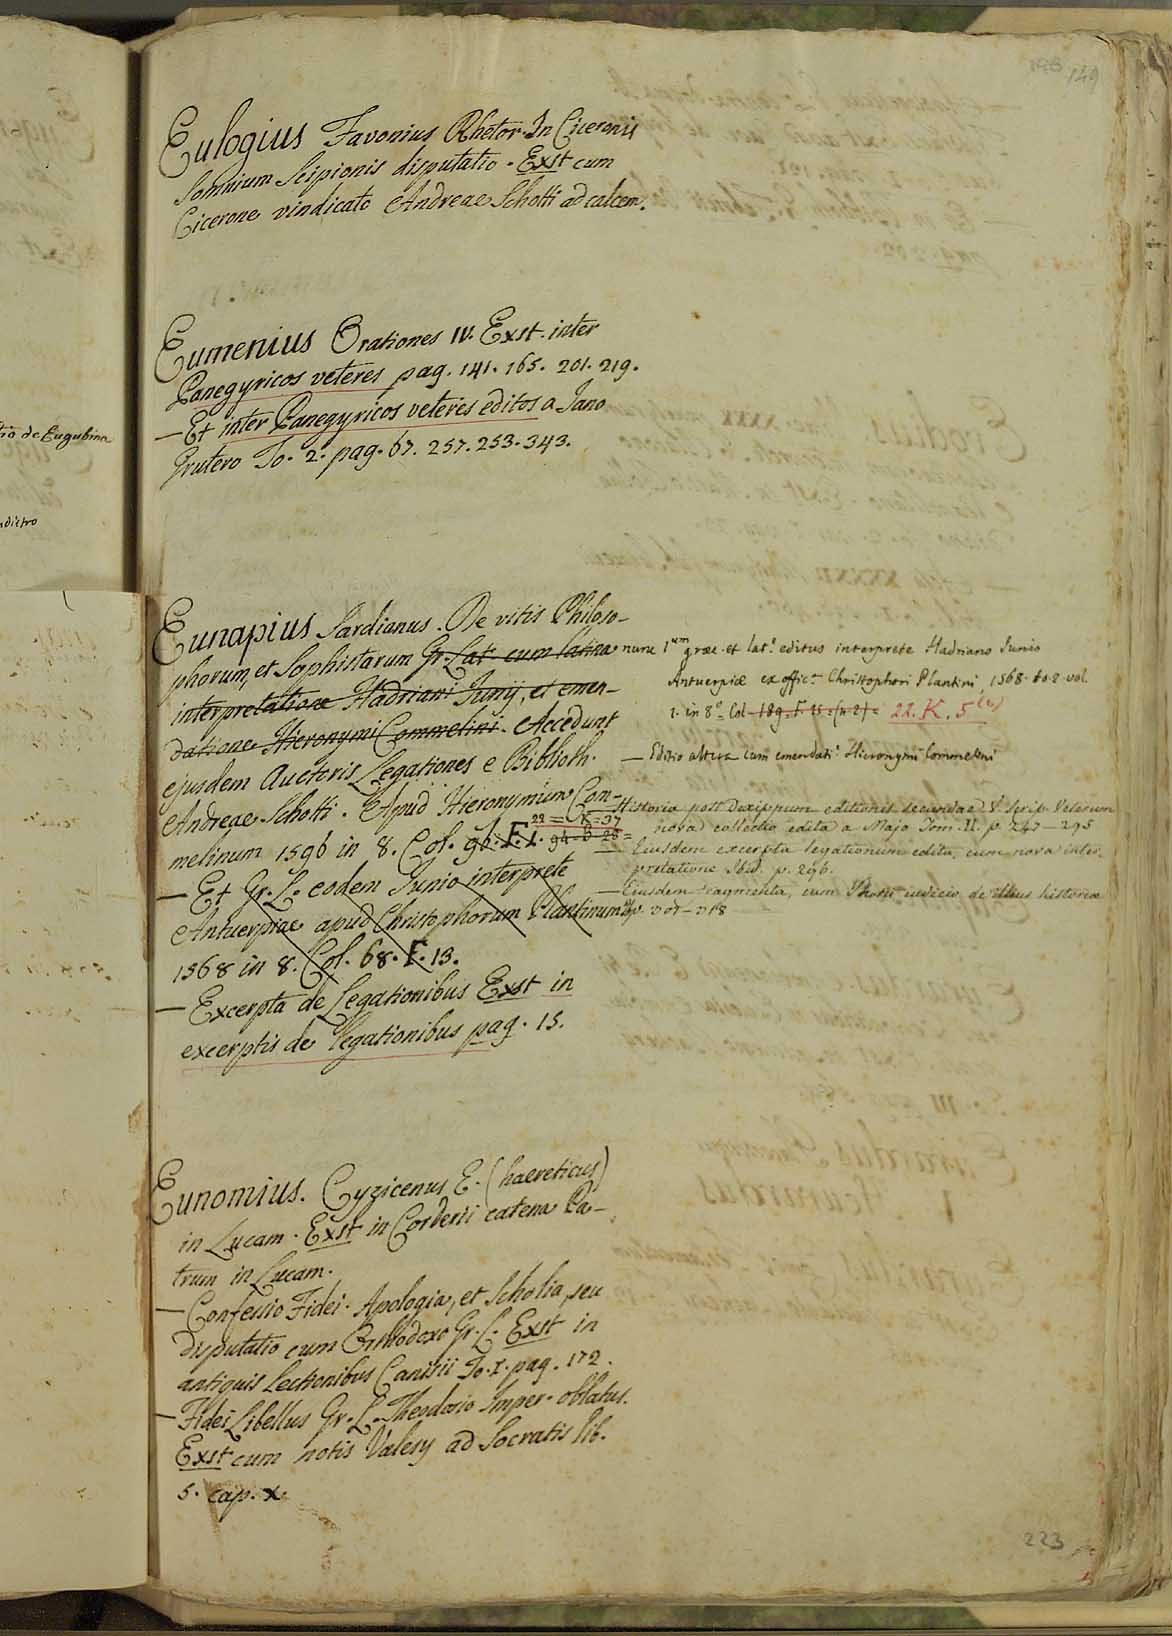 149
Eulogius Favonius Rhetor. In Ciceronis
Somnium Scipionis disputatio. Exst cum
Cicerone vindicato Andreae Schotti ad calcem.
Eumenius Orationes IV. Exst. inter
Panegyricos veteres pag. 141. 165. 201. 219.
— Et inter Panegyricos veteres editos a Jano
Grutero To. 2. pag. 67. 257. 253. 343.
tio de Eugubina
Eunapius Sardianus. De vitis Philoso-
phorum, et Sophistarum Gr. Lat. cum latina
interpretatione Hadriani Junij, et emen-
datione Hieronymi Commelini. Accedunt
ejusdem Auctoris Legationes e Biblioth.
Andreae Schotti. Apud Hieronymum Com-
22 = K = 37
melinum 1596 in 8. Col. 94 = B 28 =
— Et Gr. L. eodem Junio interprete
Antuerpiae apud Christophorum Plantinum
1568 in 8. Col. 68. F. 13.
— Excerpta de Legationibus Exst in
excerptis de legationibus pag. 15.
nunc 1um graec. et lat. editus interprete Hadriano Junio
Antuerpiae ex offic. Christophori Plantini, 1568. to. 2. vol.
1. in 8° = Col 22. K. 5
— Editio altera cum emendati Hieronymi Commelini
— Historia post Dexippum editionis secundae V. Scrip. Veterum
nova collectio edita a Majo Tom. II. p. 247 — 295
— Eiusdem excerpta legationum edita, cum nova inter-
pretatione Ibid. p. 296.
— Eiusdem fragmenta, cum Photii iudicio de illius historia
Eunomius. Cyzicenus E. (haereticus)
in Lucam. Exst in Corderii catena Pa-
trum in Lucam.
— Confessio Fidei. Apologia, et Scholia, seu
disputatio cum Orthodoxo Gr. L. Exst in
antiquis Lectionibus Canisii To. I. pag. 172.
— Fidei Libellus Gr. L. Theodosio Imper. oblatus.
Exst cum notis Valesy ad Socratis lib.
5. cap. X.
223